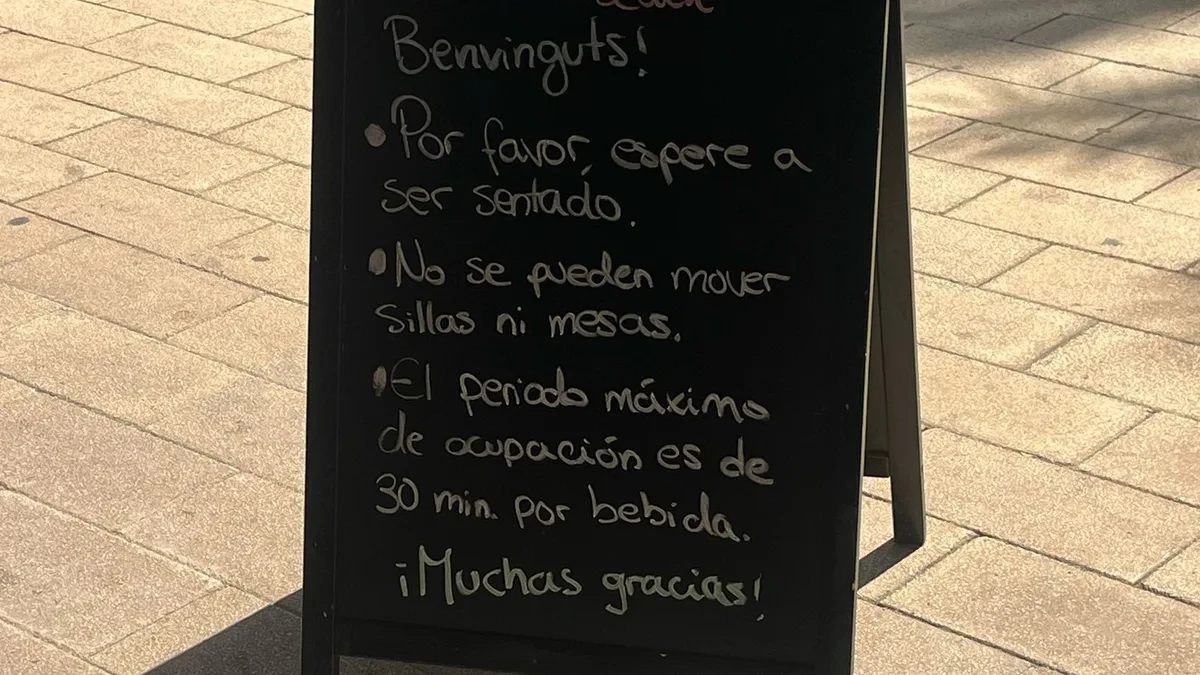 Benvinguts!
• Por favor, espere a
ser sentado.
• No se pueden mover
sillas ni mesas.
• El periodo máximo
de ocupación es de
30 min. por bebida.
¡Muchas gracias!